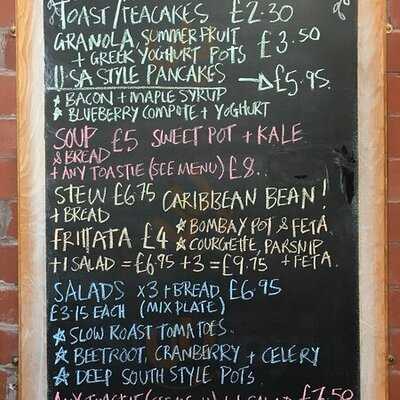 TOAST/TEACAKES £2.30
GRANOLA, SUMMER FRUIT
+ GREEK YOGHURT POTS £3.50
USA STYLE PANCAKES → £5.95
* BACON + MAPLE SYRUP
* BLUEBERRY COMPOTE + YOGHURT
SOUP £5 SWEET POT + KALE
& BREAD
+ ANY TOASTIE (SEE MENU) £8..
STEW £6.75 CARIBBEAN BEAN!
+ BREAD
FRITTATA £4 * BOMBAY POT & FETA
* COURGETTE, PARSNIP
+ FETA.
+ 1 SALAD = £6.95 + 3 = £9.75
SALADS x3 + BREAD £6.95
£3.15 EACH (MIX PLATE)
* SLOW ROAST TOMATOES.
* BEETROOT, CRANBERRY + CELERY
* DEEP SOUTH STYLE POTS.
ANY TOASTIE